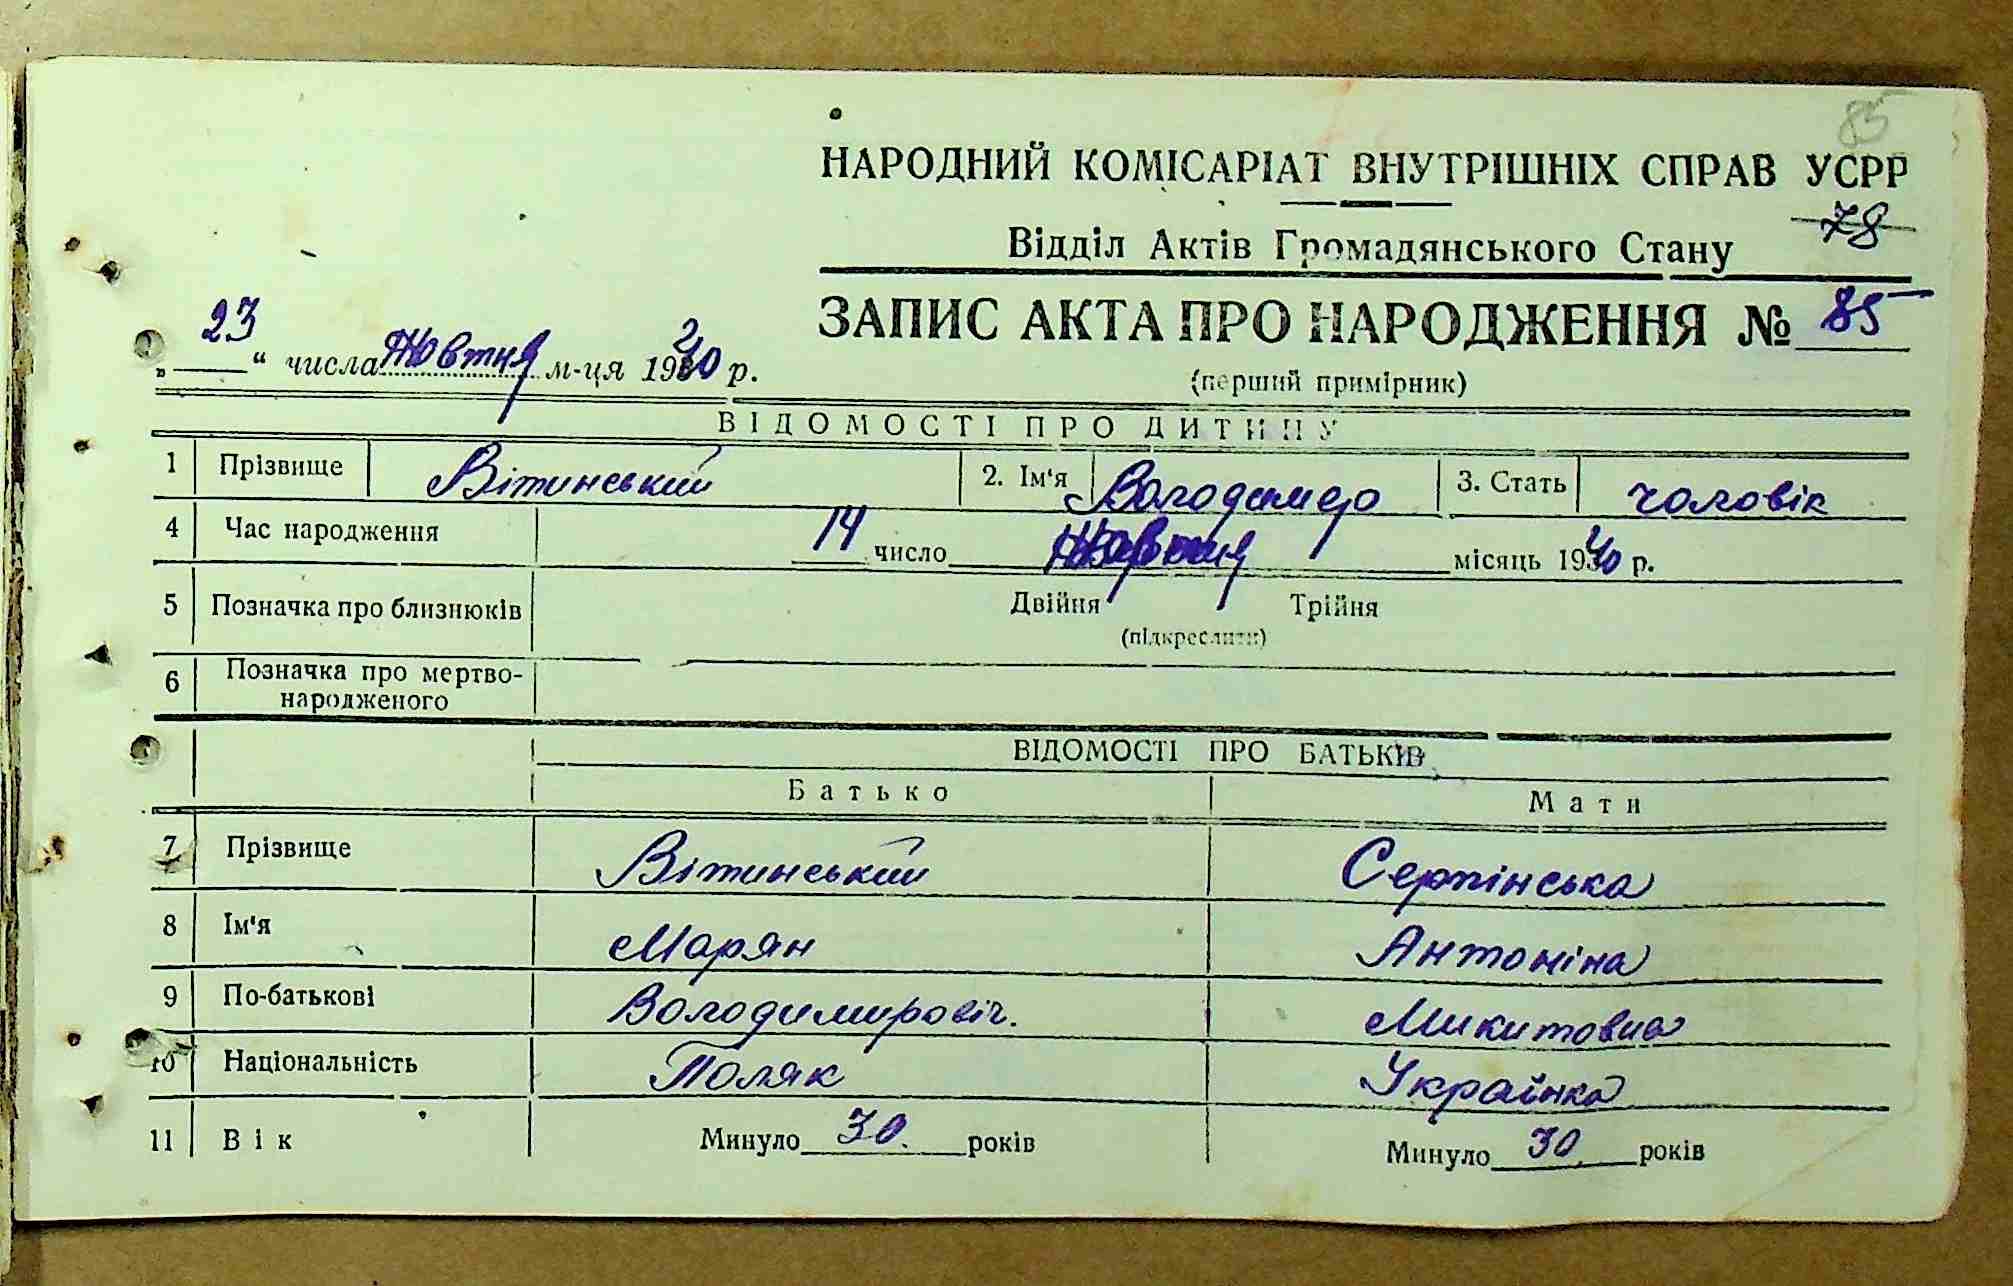 85
НАРОДНИЙ КОМІСАРІАТ ВНУТРІШНІХ СПРАВ УСРР
78
Відділ Актів Громадянського Стану
ЗАПИС АКТА ПРО НАРОДЖЕННЯ № 85
„23“ числа Жовтня м-ця 1940 р.
(перший примірник)
ВІДОМОСТІ ПРО ДИТИНУ
1 Прізвище Вітинський 2. Ім'я Володимер 3. Стать чоловік
4 Час народження 14 число Жовтня місяць 1940 р.
5 Позначка про близнюків Двійня Трійня
(підкреслити)
6 Позначка про мертво-
народженого
ВІДОМОСТІ ПРО БАТЬКІВ
Батько Мати
7 Прізвище Вітинський Серпінська
8 Ім'я Марян Антоніна
9 По-батькові Володимировіч. Микитовна
10 Національність Поляк Українка
11 Вік Минуло 30. років Минуло 30. років